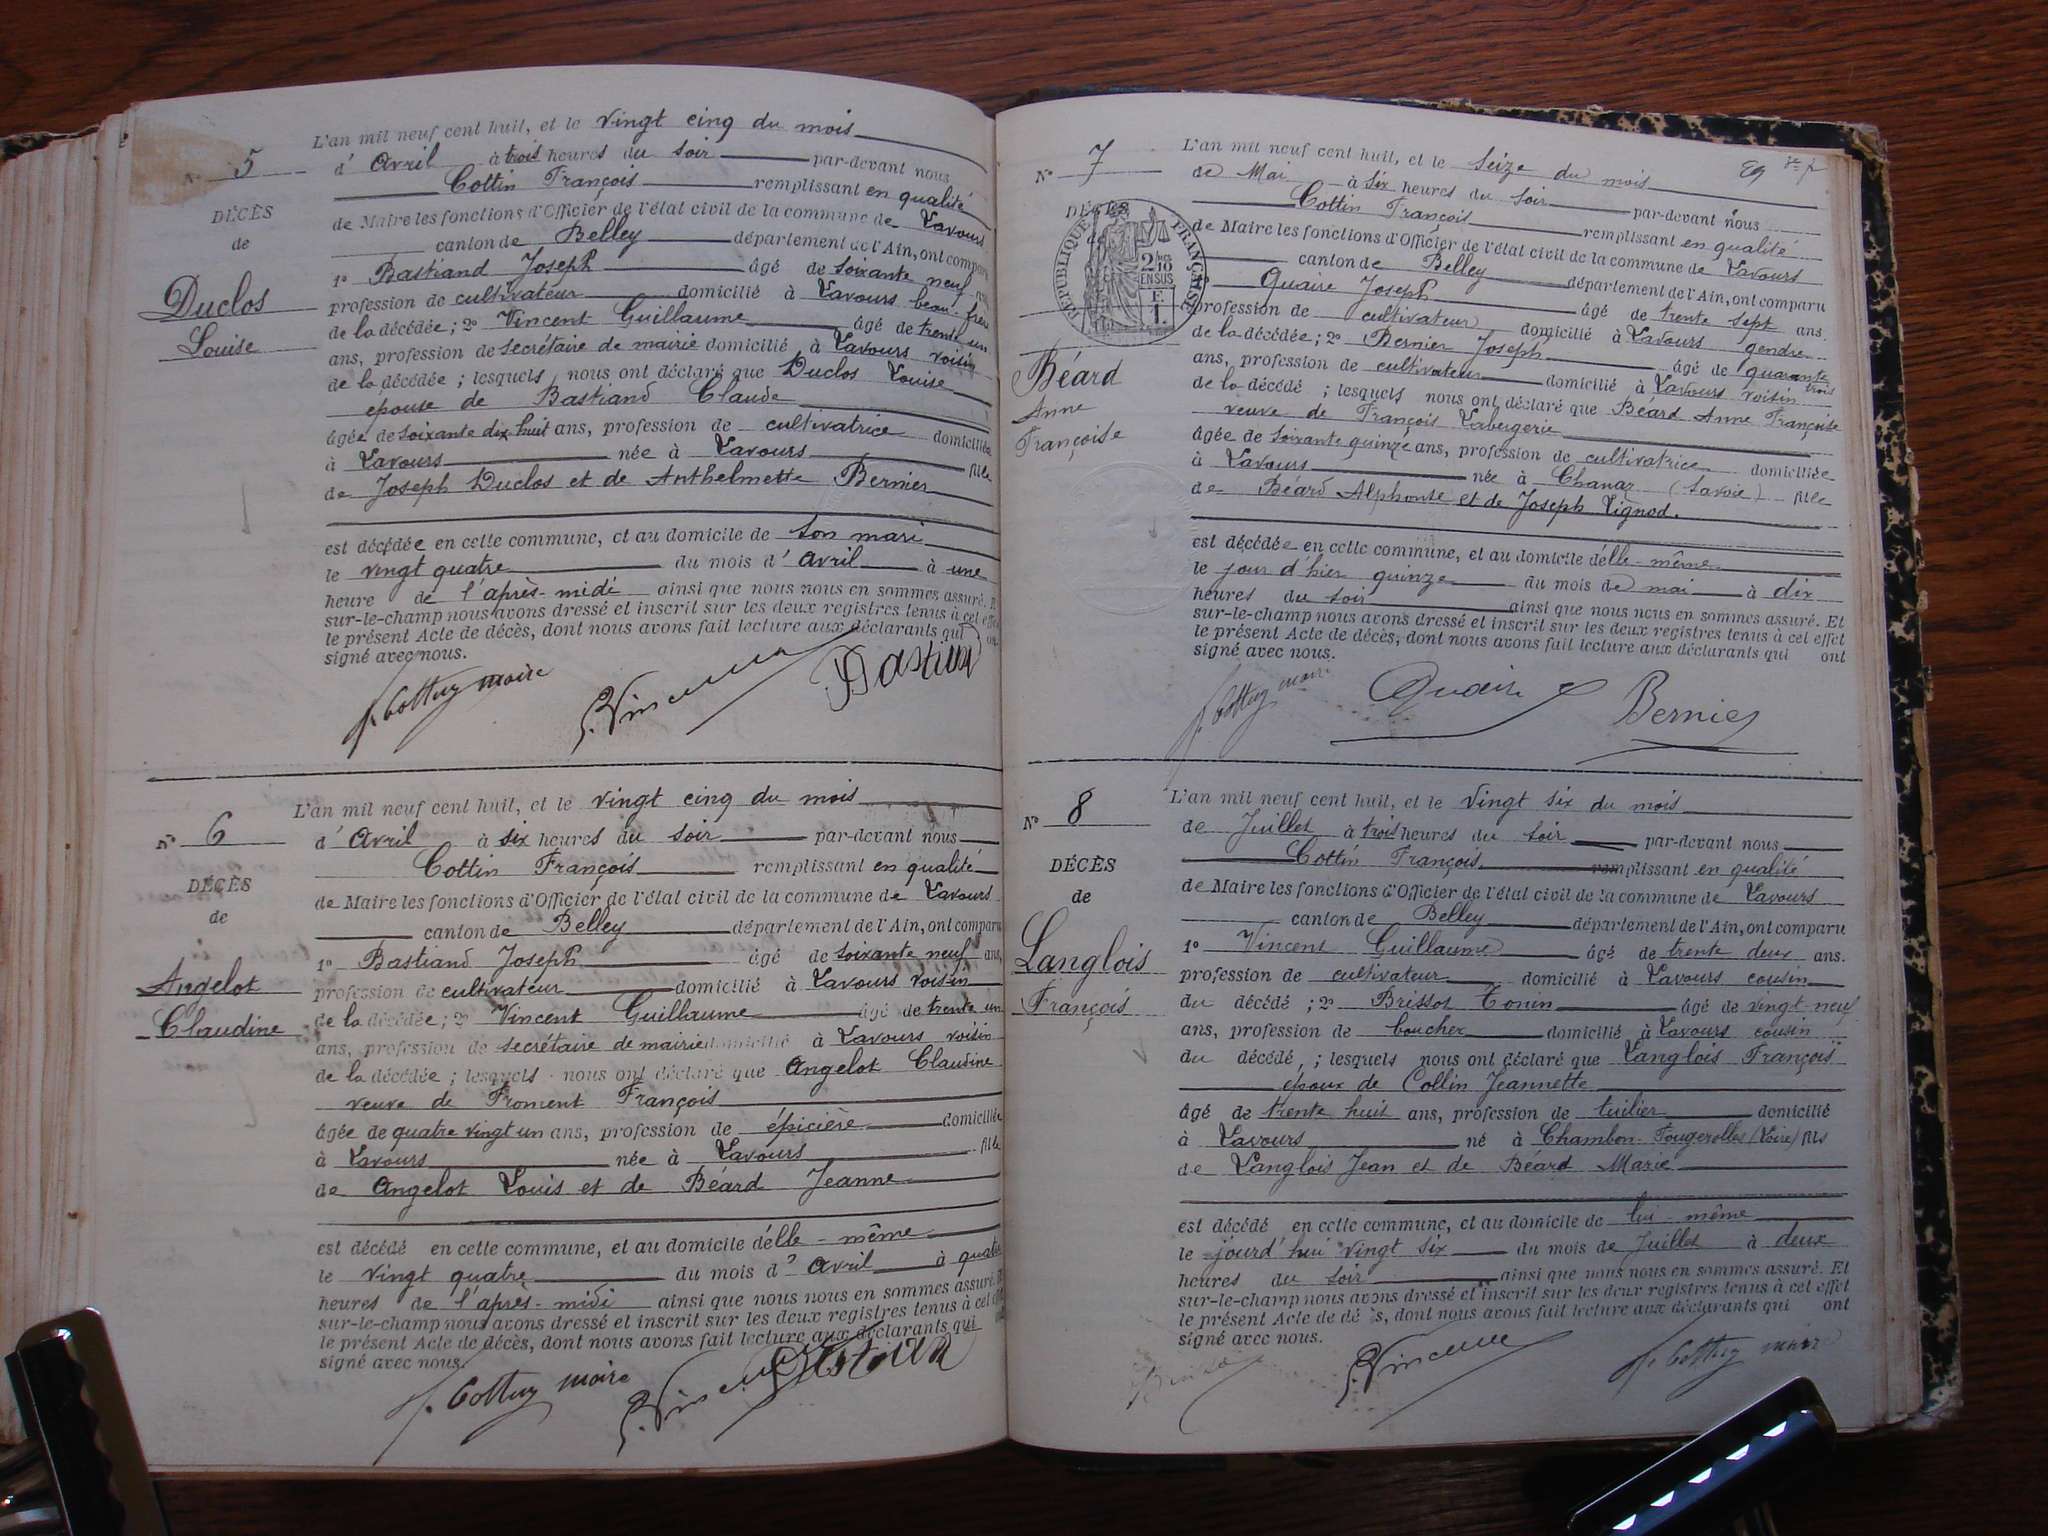 L'an mil neuf cent huit, et le vingt cinq du mois
N° 5 d' Avril à trois heures du soir par-devant nous
Cottin François remplissant en qualité
DÉCÈS de Maire les fonctions d'Officier de l'état civil de la commune de Lavours
de canton de Belley département de l'Ain, ont comparu
1° Bastiand Joseph âgé de soixante neuf ans
Duclos profession de cultivateur domicilié à Lavours beau-frère
de la décédée; 2° Vincent Guillaume âgé de trente un
Louise ans, profession de secrétaire de mairie domicilié à Lavours voisin
de la décédée; lesquels nous ont déclaré que Duclos Louise
épouse de Bastiand Claude
âgée de soixante dix huit ans, profession de cultivatrice domiciliée
à Lavours née à Lavours fille
de Joseph Duclos et de Anthelmette Bernier
est décédée en cette commune, et au domicile de son mari
le vingt quatre du mois d' Avril à une
heure de l'après-midi ainsi que nous nous en sommes assuré. Et
sur-le-champ nous avons dressé et inscrit sur les deux registres tenus à cet effet
le présent Acte de décès, dont nous avons fait lecture aux déclarants qui ont
signé avec nous.
f. Cottin maire G. Vincent Bastian
L'an mil neuf cent huit, et le vingt cinq du mois
N° 6 d' Avril à six heures du soir par-devant nous
Cottin François remplissant en qualité
DÉCÈS de Maire les fonctions d'Officier de l'état civil de la commune de Lavours
de canton de Belley département de l'Ain, ont comparu
1° Bastiand Joseph âgé de soixante neuf ans,
Angelot profession de cultivateur domicilié à Lavours voisin
Claudine de la décédée; 2° Vincent Guillaume âgé de trente un
ans, profession de secrétaire de mairie domicilié à Lavours voisin
de la décédée; lesquels nous ont déclaré que Angelot Claudine
veuve de Froment François
âgée de quatre vingt un ans, profession de épicière domiciliée
à Lavours née à Lavours fille
de Angelot Louis et de Béard Jeanne
est décédé en cette commune, et au domicile d'elle-même
le vingt quatre du mois d' Avril à quatre
heures de l'après-midi ainsi que nous nous en sommes assuré. Et
sur-le-champ nous avons dressé et inscrit sur les deux registres tenus à cet effet
le présent Acte de décès, dont nous avons fait lecture aux déclarants qui
signé avec nous.
f. Cottin maire G. Vincent Bastian
L'an mil neuf cent huit, et le seize du mois
N° 7 de Mai à six heures du soir par-devant nous
Cottin François remplissant en qualité
DÉCÈS de Maire les fonctions d'Officier de l'état civil de la commune de Lavours
RÉPUBLIQUE FRANÇAISE
2/10 EN SUS
F. 1.
canton de Belley département de l'Ain, ont comparu
Quaire Joseph âgé de trente sept ans.
profession de cultivateur domicilié à Lavours gendre
de la décédée; 2° Bernier Joseph âgé de quarante trois
Béard ans, profession de cultivateur domicilié à Lavours voisin
Anne de la décédé ; lesquels nous ont déclaré que Béard Anne Françoise
Françoise veuve de François Labergerie
âgée de soixante quinze ans, profession de cultivatrice domiciliée
à Lavours née à Chanaz (Savoie) fille
de Béard Alphonse et de Joseph Lignod.
est décédée en cette commune, et au domicile d'elle-même
le jour d'hier quinze du mois de mai à dix
heures du soir ainsi que nous nous en sommes assuré. Et
sur-le-champ nous avons dressé et inscrit sur les deux registres tenus à cet effet
le présent Acte de décès, dont nous avons fait lecture aux déclarants qui ont
signé avec nous.
f. Cottin maire Quaire Bernier
L'an mil neuf cent huit, et le vingt six du mois
N° 8 de Juillet à trois heures du soir par-devant nous
Cottin François remplissant en qualité
DÉCÈS de Maire les fonctions d'Officier de l'état civil de la commune de Lavours
de canton de Belley département de l'Ain, ont comparu
1° Vincent Guillaume âgé de trente deux ans.
Langlois profession de cultivateur domicilié à Lavours cousin
François du décédé ; 2° Brissot Tonin âgé de vingt-neuf
ans, profession de boucher domicilié à Lavours cousin
du décédé, ; lesquels nous ont déclaré que Langlois François
époux de Collin Jeannette
âgé de trente huit ans, profession de tuilier domicilié
à Lavours né à Chambon-Fougerolles (Loire) fils
de Langlois Jean et de Béard Marie
est décédé en cette commune, et au domicile de lui-même
le jourd'hui vingt six du mois de Juillet à deux
heures du soir ainsi que nous nous en sommes assuré. Et
sur-le-champ nous avons dressé et inscrit sur les deux registres tenus à cet effet
le présent Acte de dé s, dont nous avons fait lecture aux déclarants qui ont
signé avec nous.
G. Vincent f. Cottin maire